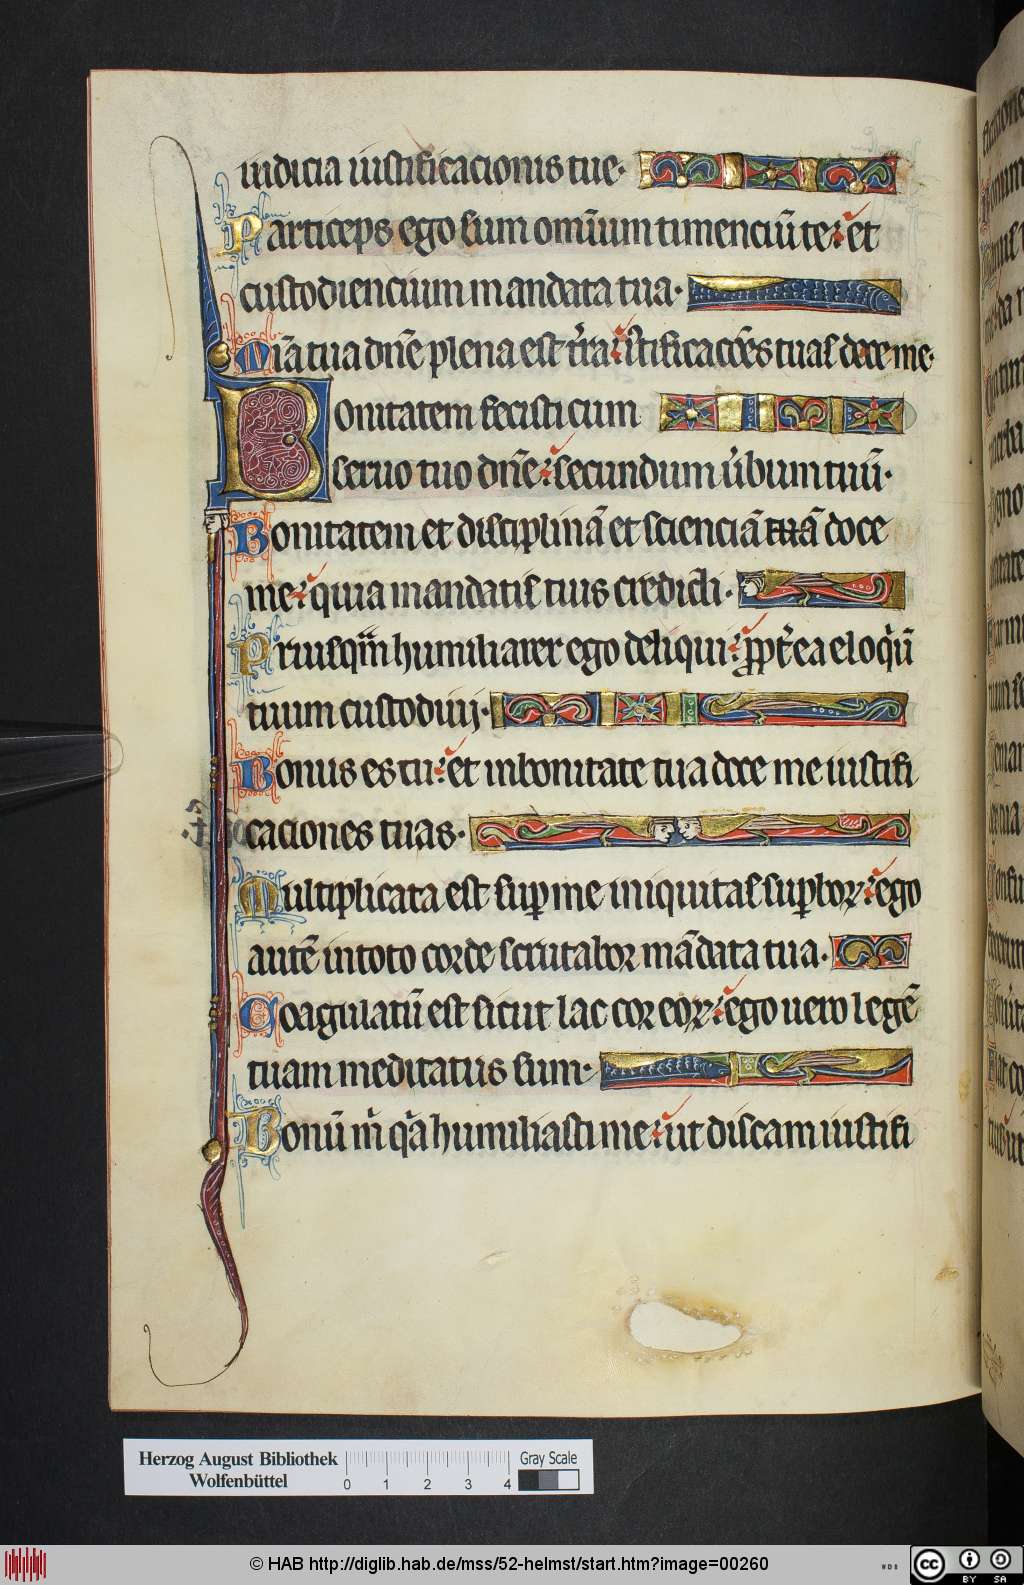 iudicia iustificacionis tue·
Particeps ego sum om̄ium timenciū te: et
custodiencium mandata tua·
Mīa tua dn̄e plena est t̾ra: iustificac̄oes tuas doce me·
Bonitatem fecisti cum
seruo tuo dn̄e: secundum u̾bum tuū·
Bonitatem et disciplinā et scienciā tuā doce
me: quia mandatis tuis credidi·
Priusqm̄ humiliarer ego deliqui: ꝓpt̾ea eloq̾ū
tuum custodiuij·
Bonus es tu: et in bonitate tua doce me iustifi
caciones tuas·
Multiplicata est suꝑ me iniquitas suꝑboꝝ: ego
autē in toto corde scrutabor mādata tua·
Coagulatū est sicut lac cor eoꝝ: ego uero legē
tuam meditatus sum·
Bonū m̾ q̾a humiliasti me: ut discam iustifi
Herzog August Bibliothek
Wolfenbüttel
0 1 2 3 4
Gray Scale
© HAB http://diglib.hab.de/mss/52-helmst/start.htm?image=00260
WDB
cc BY SA